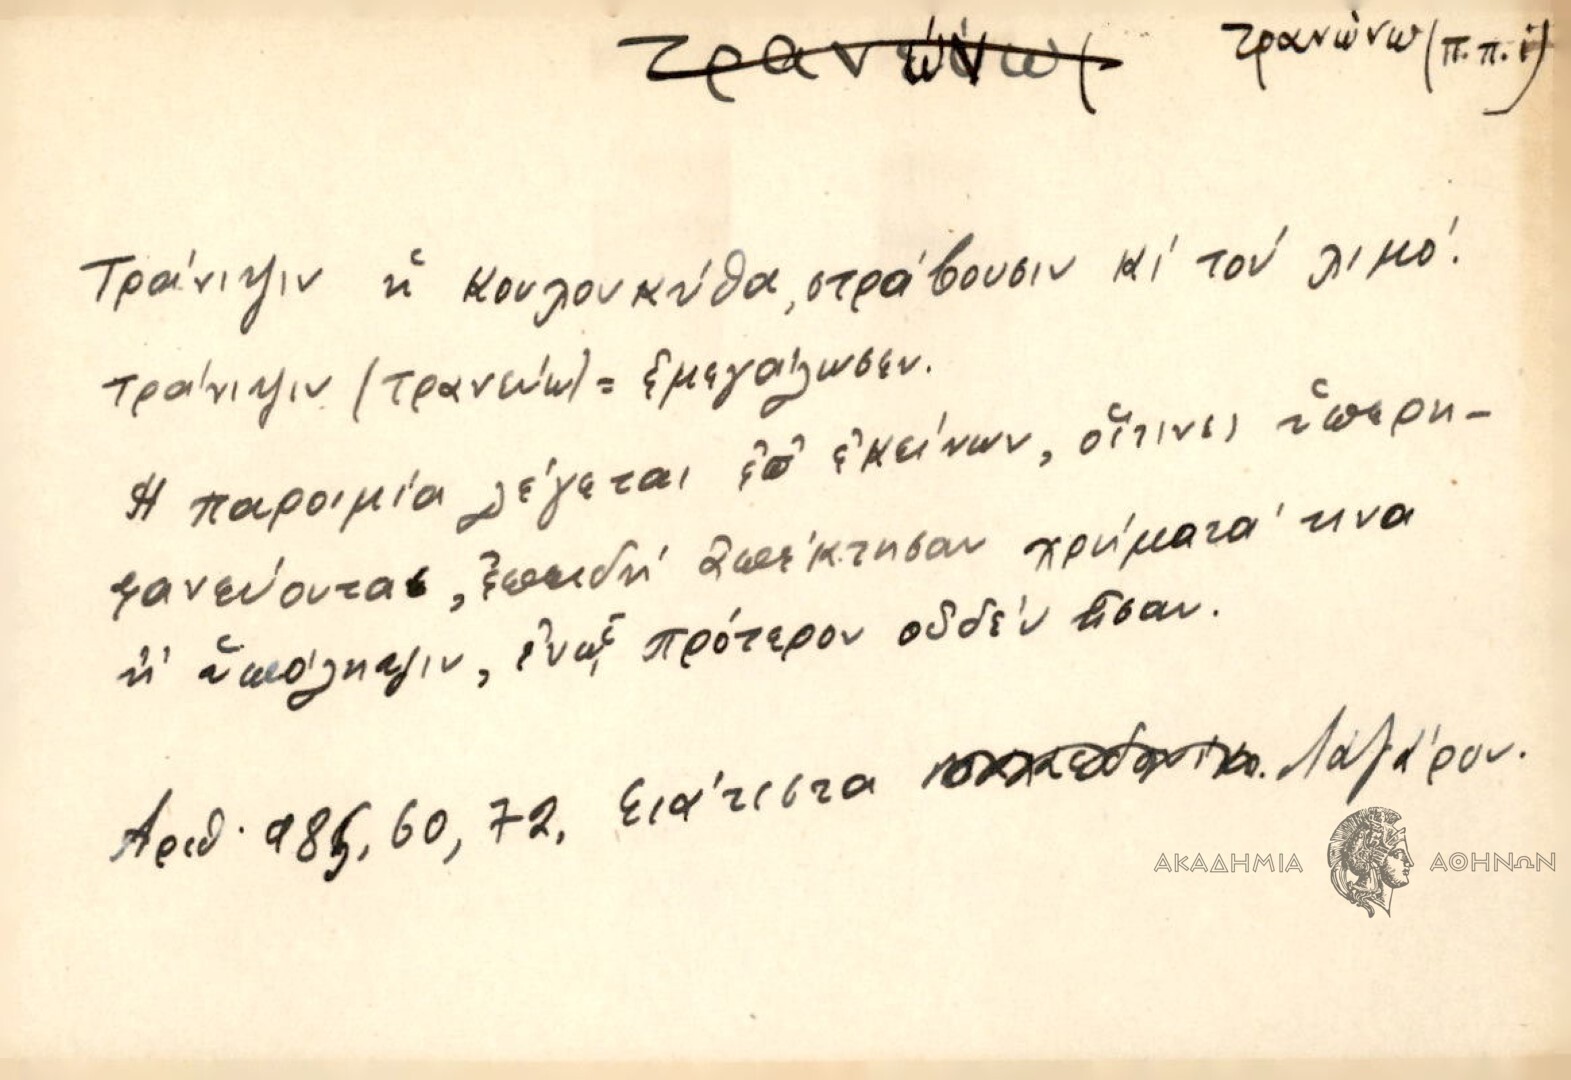 τρανώνω (π.π. ι)
Τράνιψιν ἡ κουλουκύθα, στράβουσιν κὶ τοὺ λιμό.
τράνιψιν (τρανεύω) = ἐμεγάλωσεν.
Ἡ παροιμία λέγεται ἐπ' ἐκείνων, οἵτινες ὑπερη-
φανεύονται, ἐπειδὴ ἀπέκτησαν χρήματά τινα
ἢ ὑπόληψιν, ἐνῷ πρότερον οὐδὲν ἦσαν.
Ἀριθ. 985, 60, 72, Σιάτιστα Λαζάρου.
ΑΚΑΔΗΜΙΑ ΑΘΗΝΩΝ